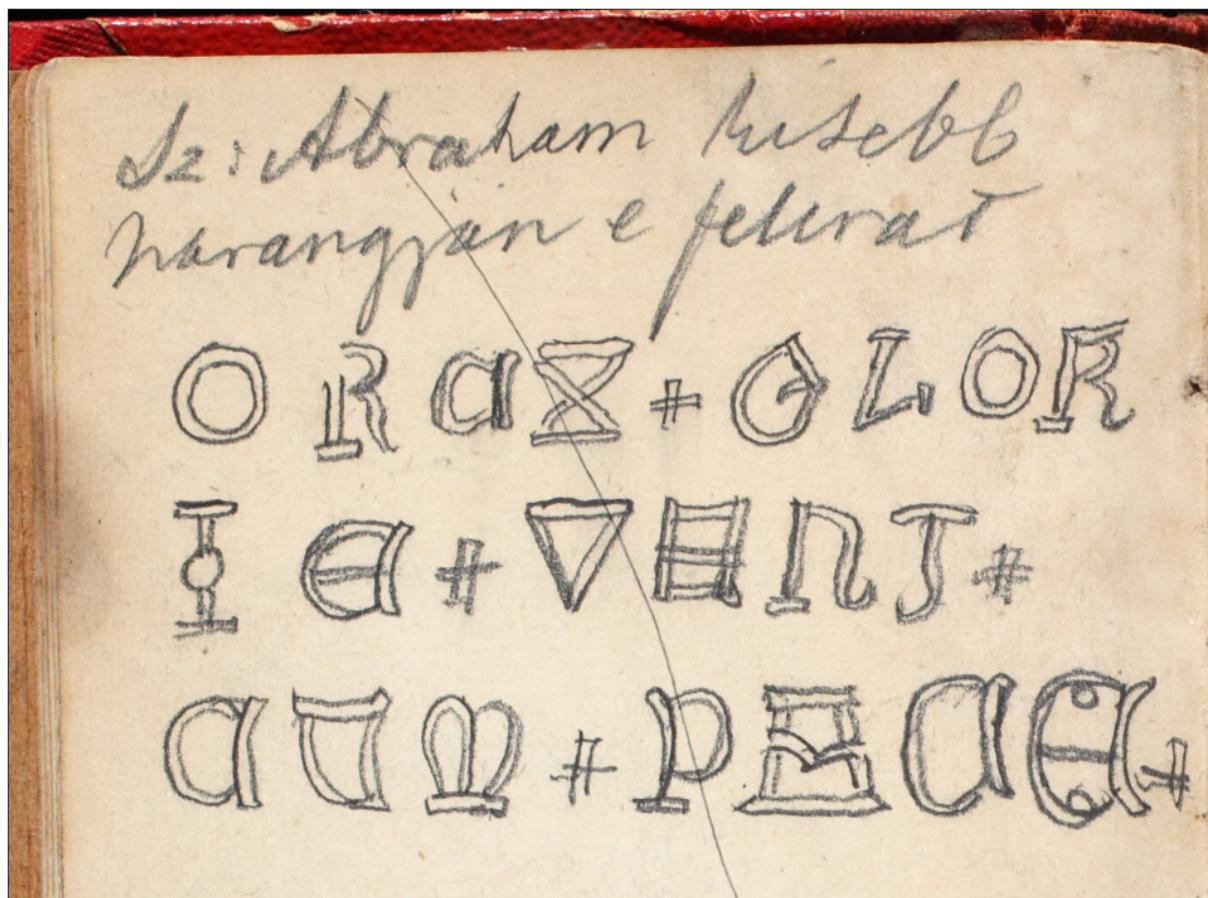 Sz: Abraham kisebb
harangján e felirat
O R C X + G L O R
I E + V E N I +
C U M + P A C E +